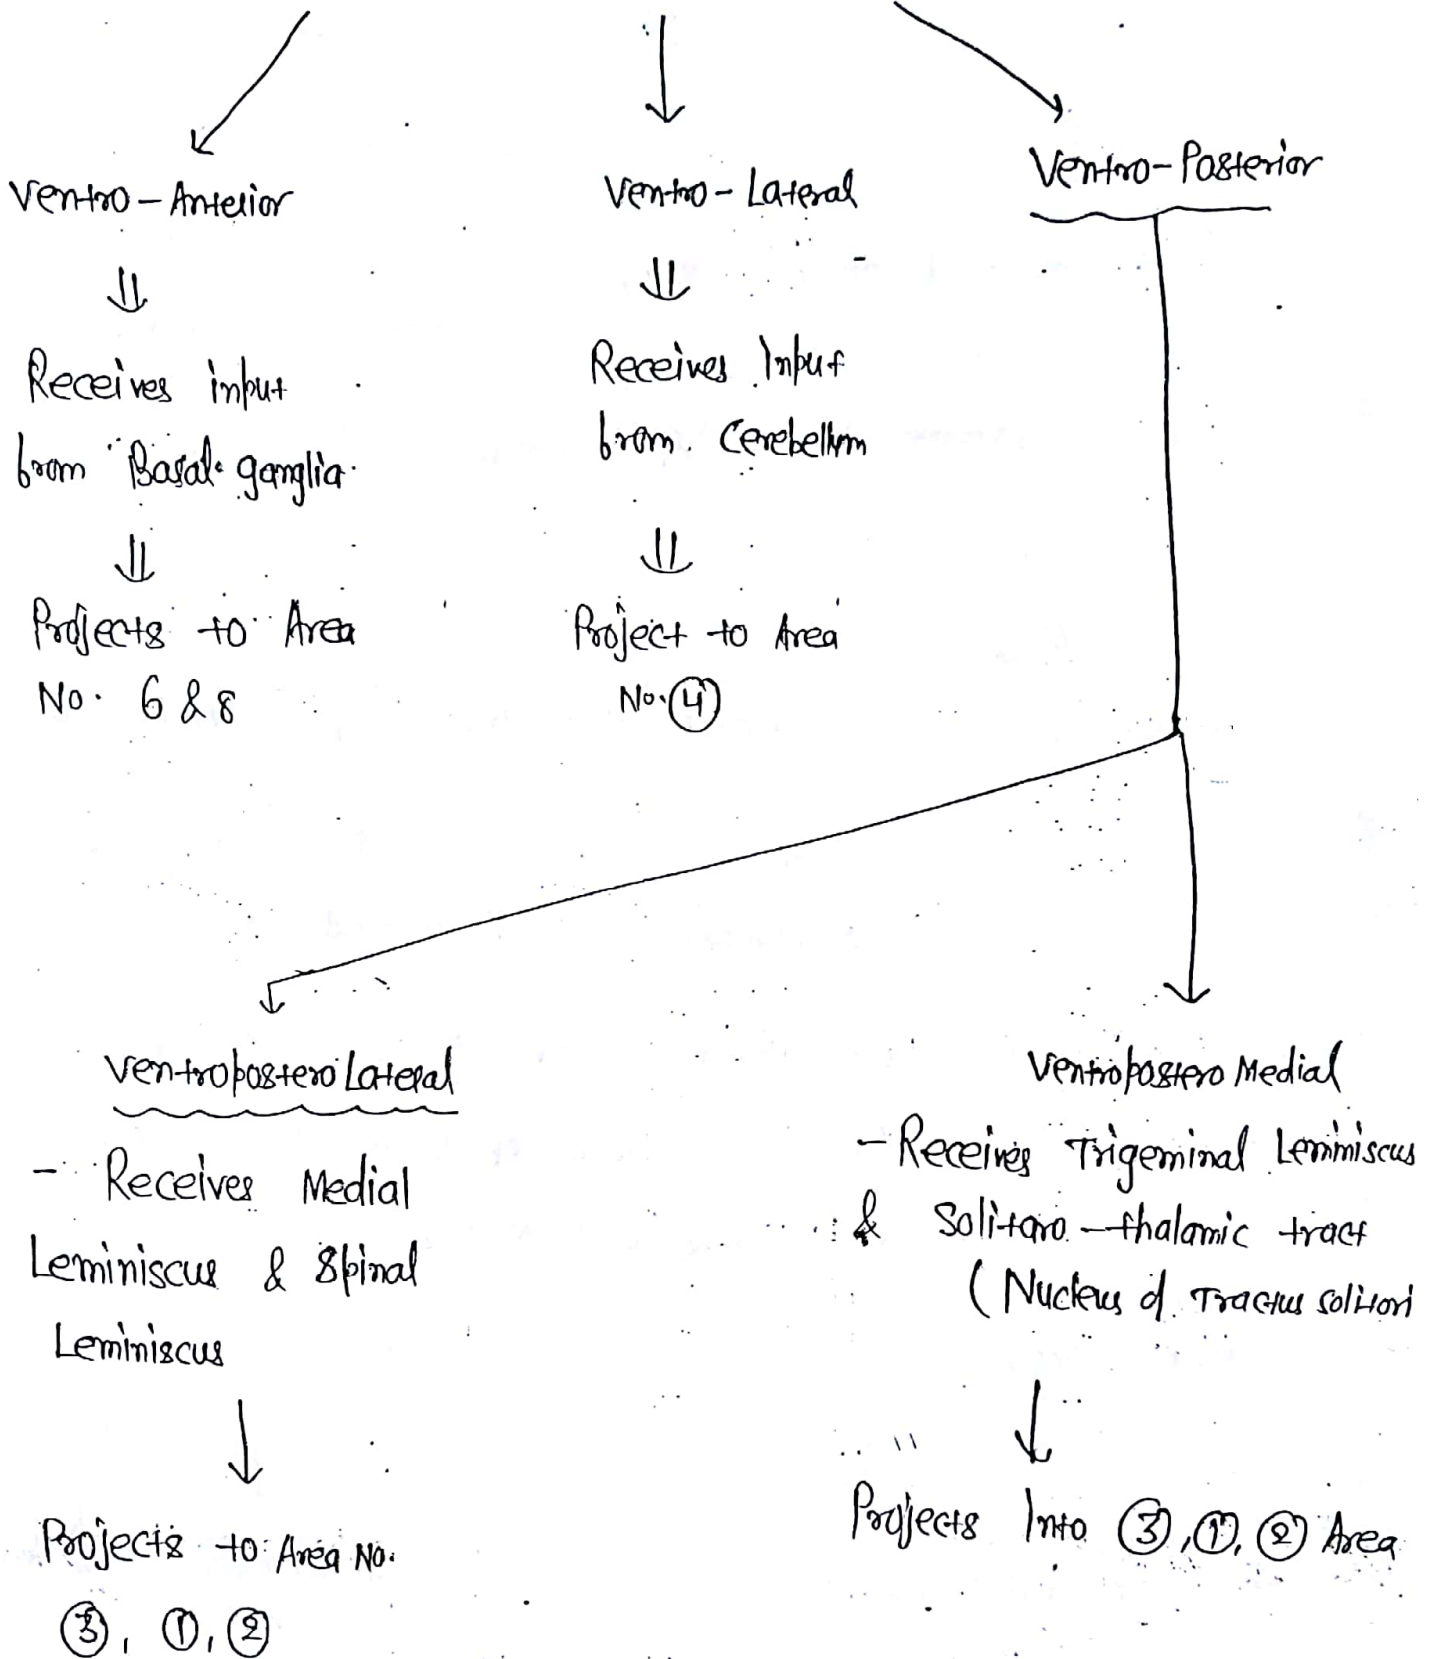 Ventro-Anterior
⇓
Receives input
from Basal ganglia
⇓
Projects to Area
No. 6 & 8
Ventro-Lateral
⇓
Receives Input
from Cerebellum
⇓
Project to Area
No. 4
Ventro-Posterior
Ventropostero Lateral
- Receives Medial
Leminiscus & Spinal
Leminiscus
↓
Projects to Area No.
3, 1, 2
Ventropostero Medial
- Receives Trigeminal Leminiscus
& Solitaro-thalamic tract
(Nucleus of Tractus solitori
↓
Projects Into 3, 1, 2 Area